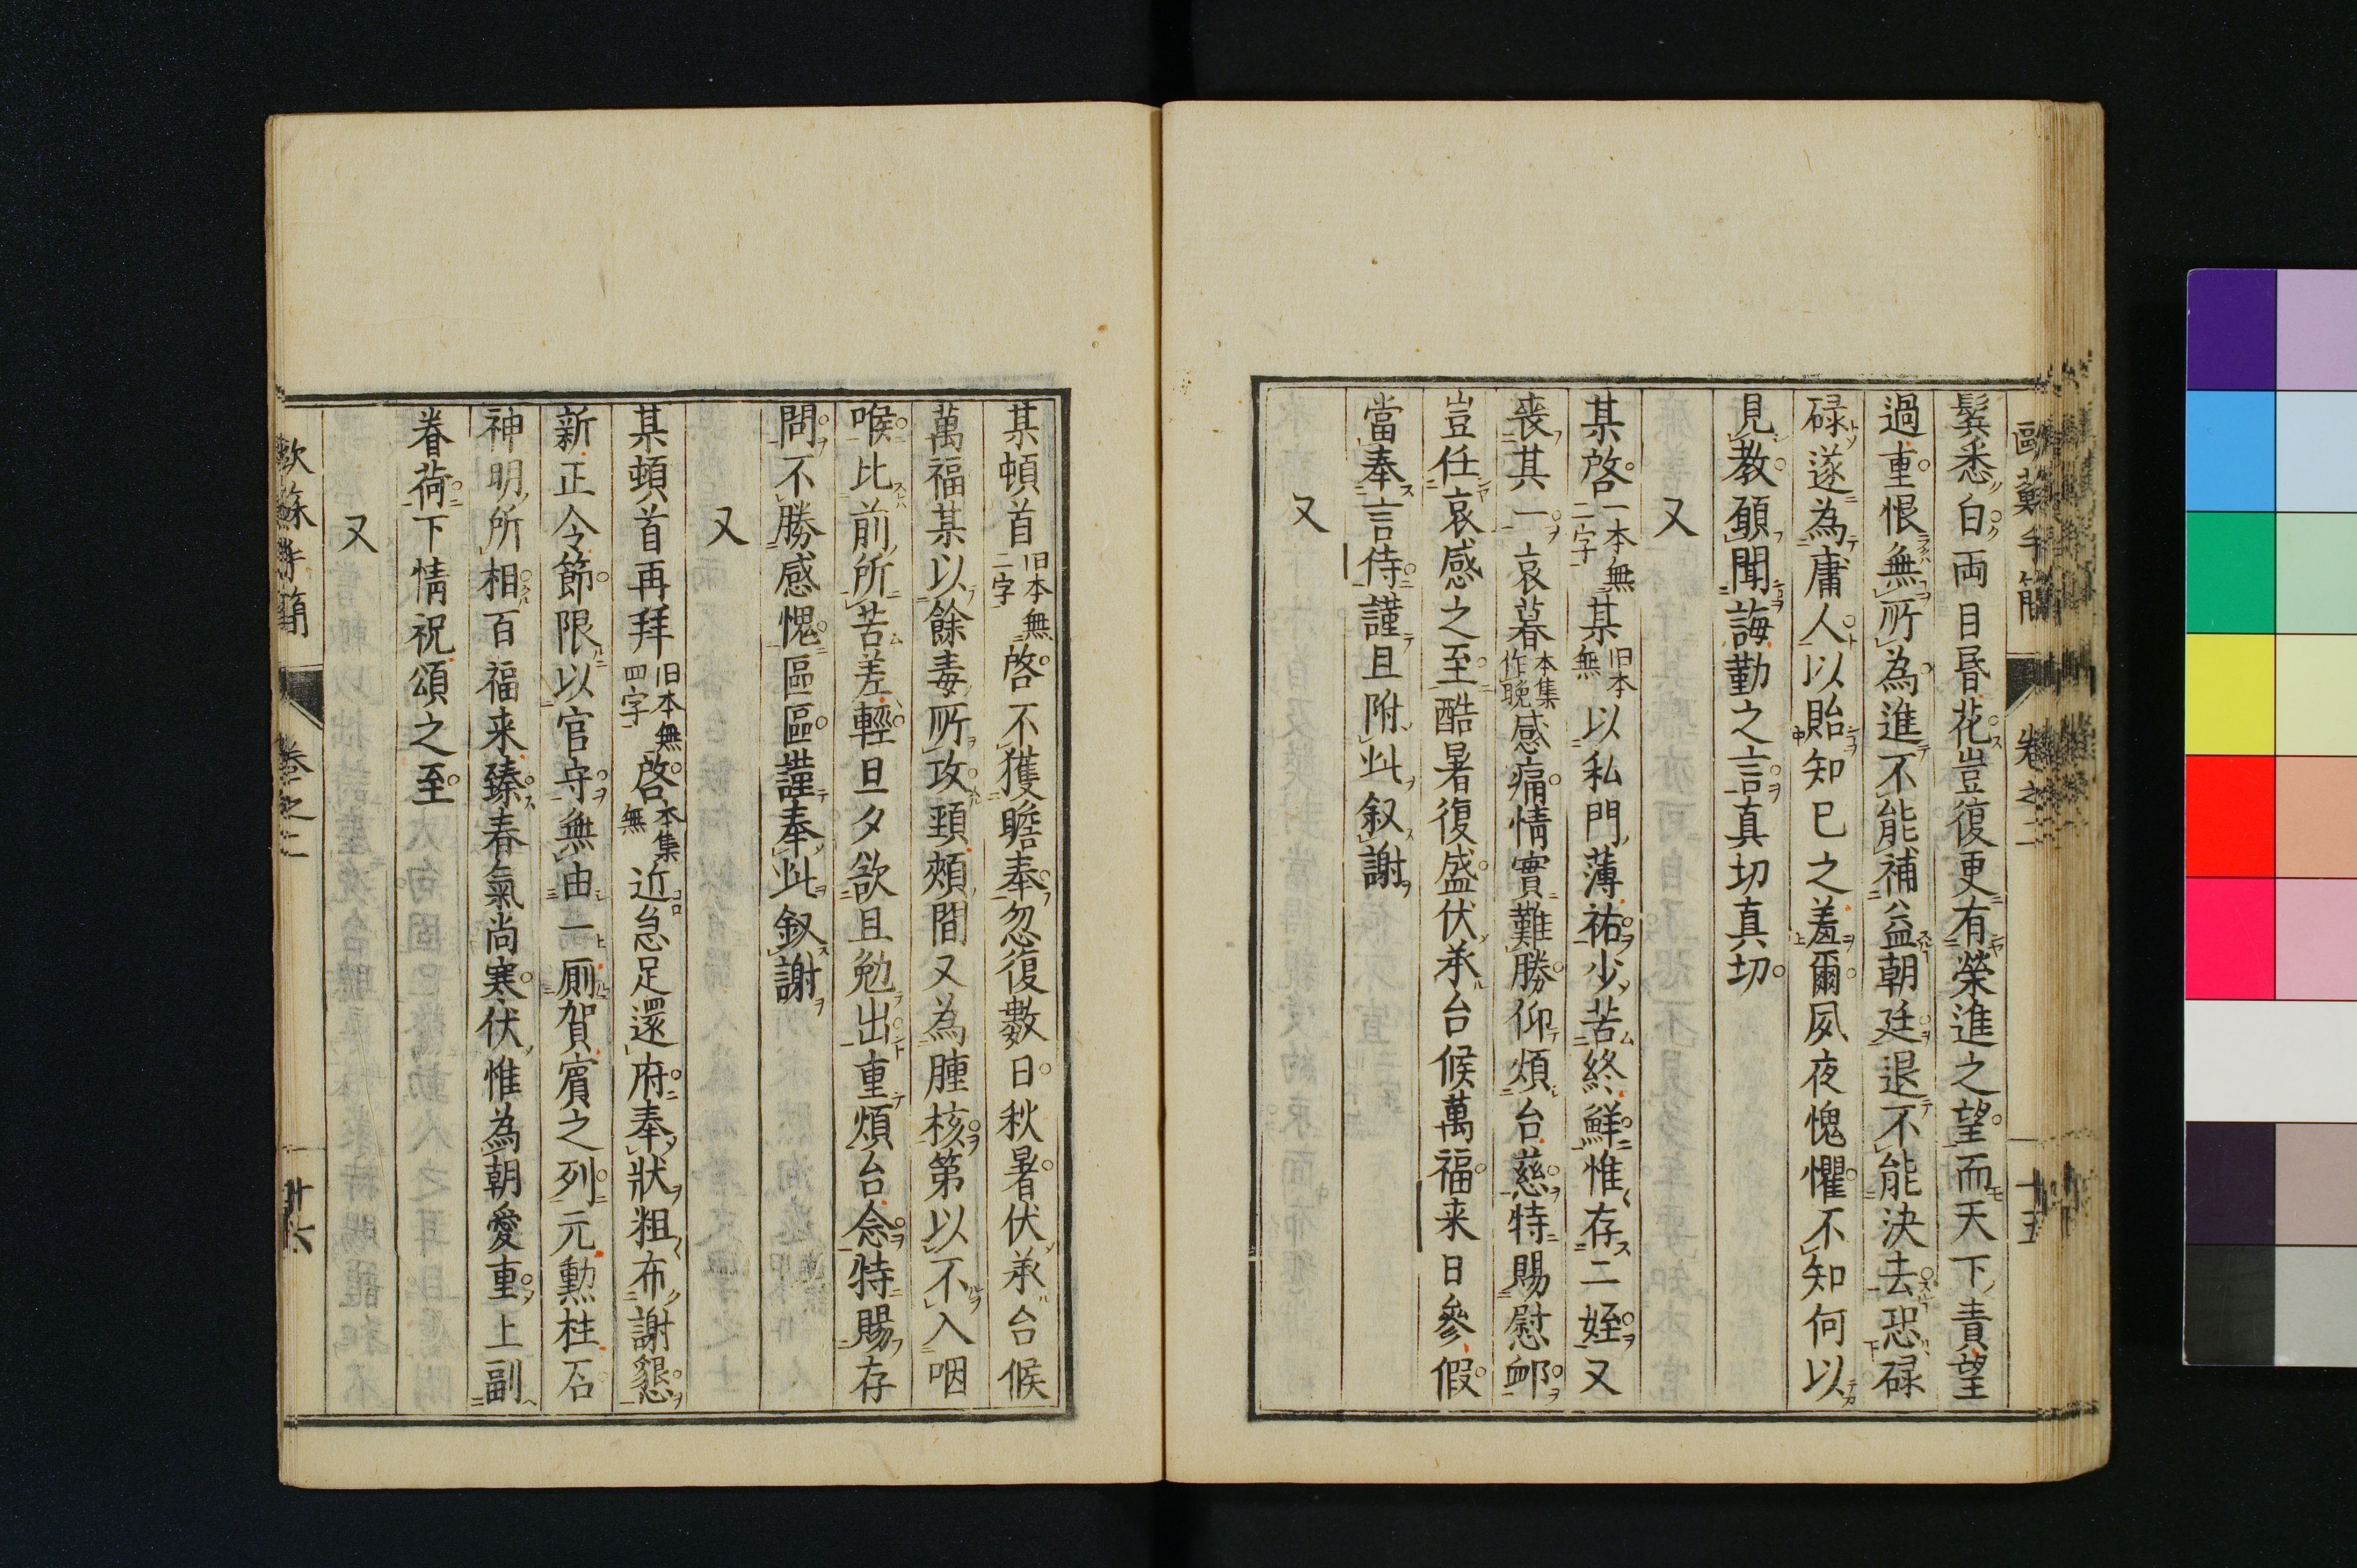 歐蘓手簡 卷之二 十五
鬂悉白両目昬花豈復更有榮進之望而天下責望
過重恨無所為進不能補益朝廷退不能決去恐碌
碌遂為庸人以貽知已之羞爾夙夜愧懼不知何以
見教願聞誨勤之言真切真切
又
某啓一本無二字某旧本無以私門薄祐少苦終鮮惟存二姪又
喪其一哀暮本集作晚感痛情實難勝仰煩台慈特賜慰䘏
豈任哀感之至酷暑復盛伏承台候萬福来日參假
當奉言侍謹且附此叙謝
又
某頓首旧本無二字啓不獲瞻奉忽復數日秋暑伏承台候
萬福某以餘毒所攻頸頰間又為腫核第以不入咽
喉比前所苦差輕旦夕欲且勉出重煩台念特賜存
問不勝感愧區區謹奉此叙謝
又
某頓首再拜旧本無四字啓本集無近急足還府奉狀粗布謝懇
新正令節限以官守無由一厠賀賓之列元勲柱石
神明所相百福来臻春氣尚寒伏惟為朝愛重上副
眷荷下情祝頌之至
又
歐蘇手簡 卷之二 十六